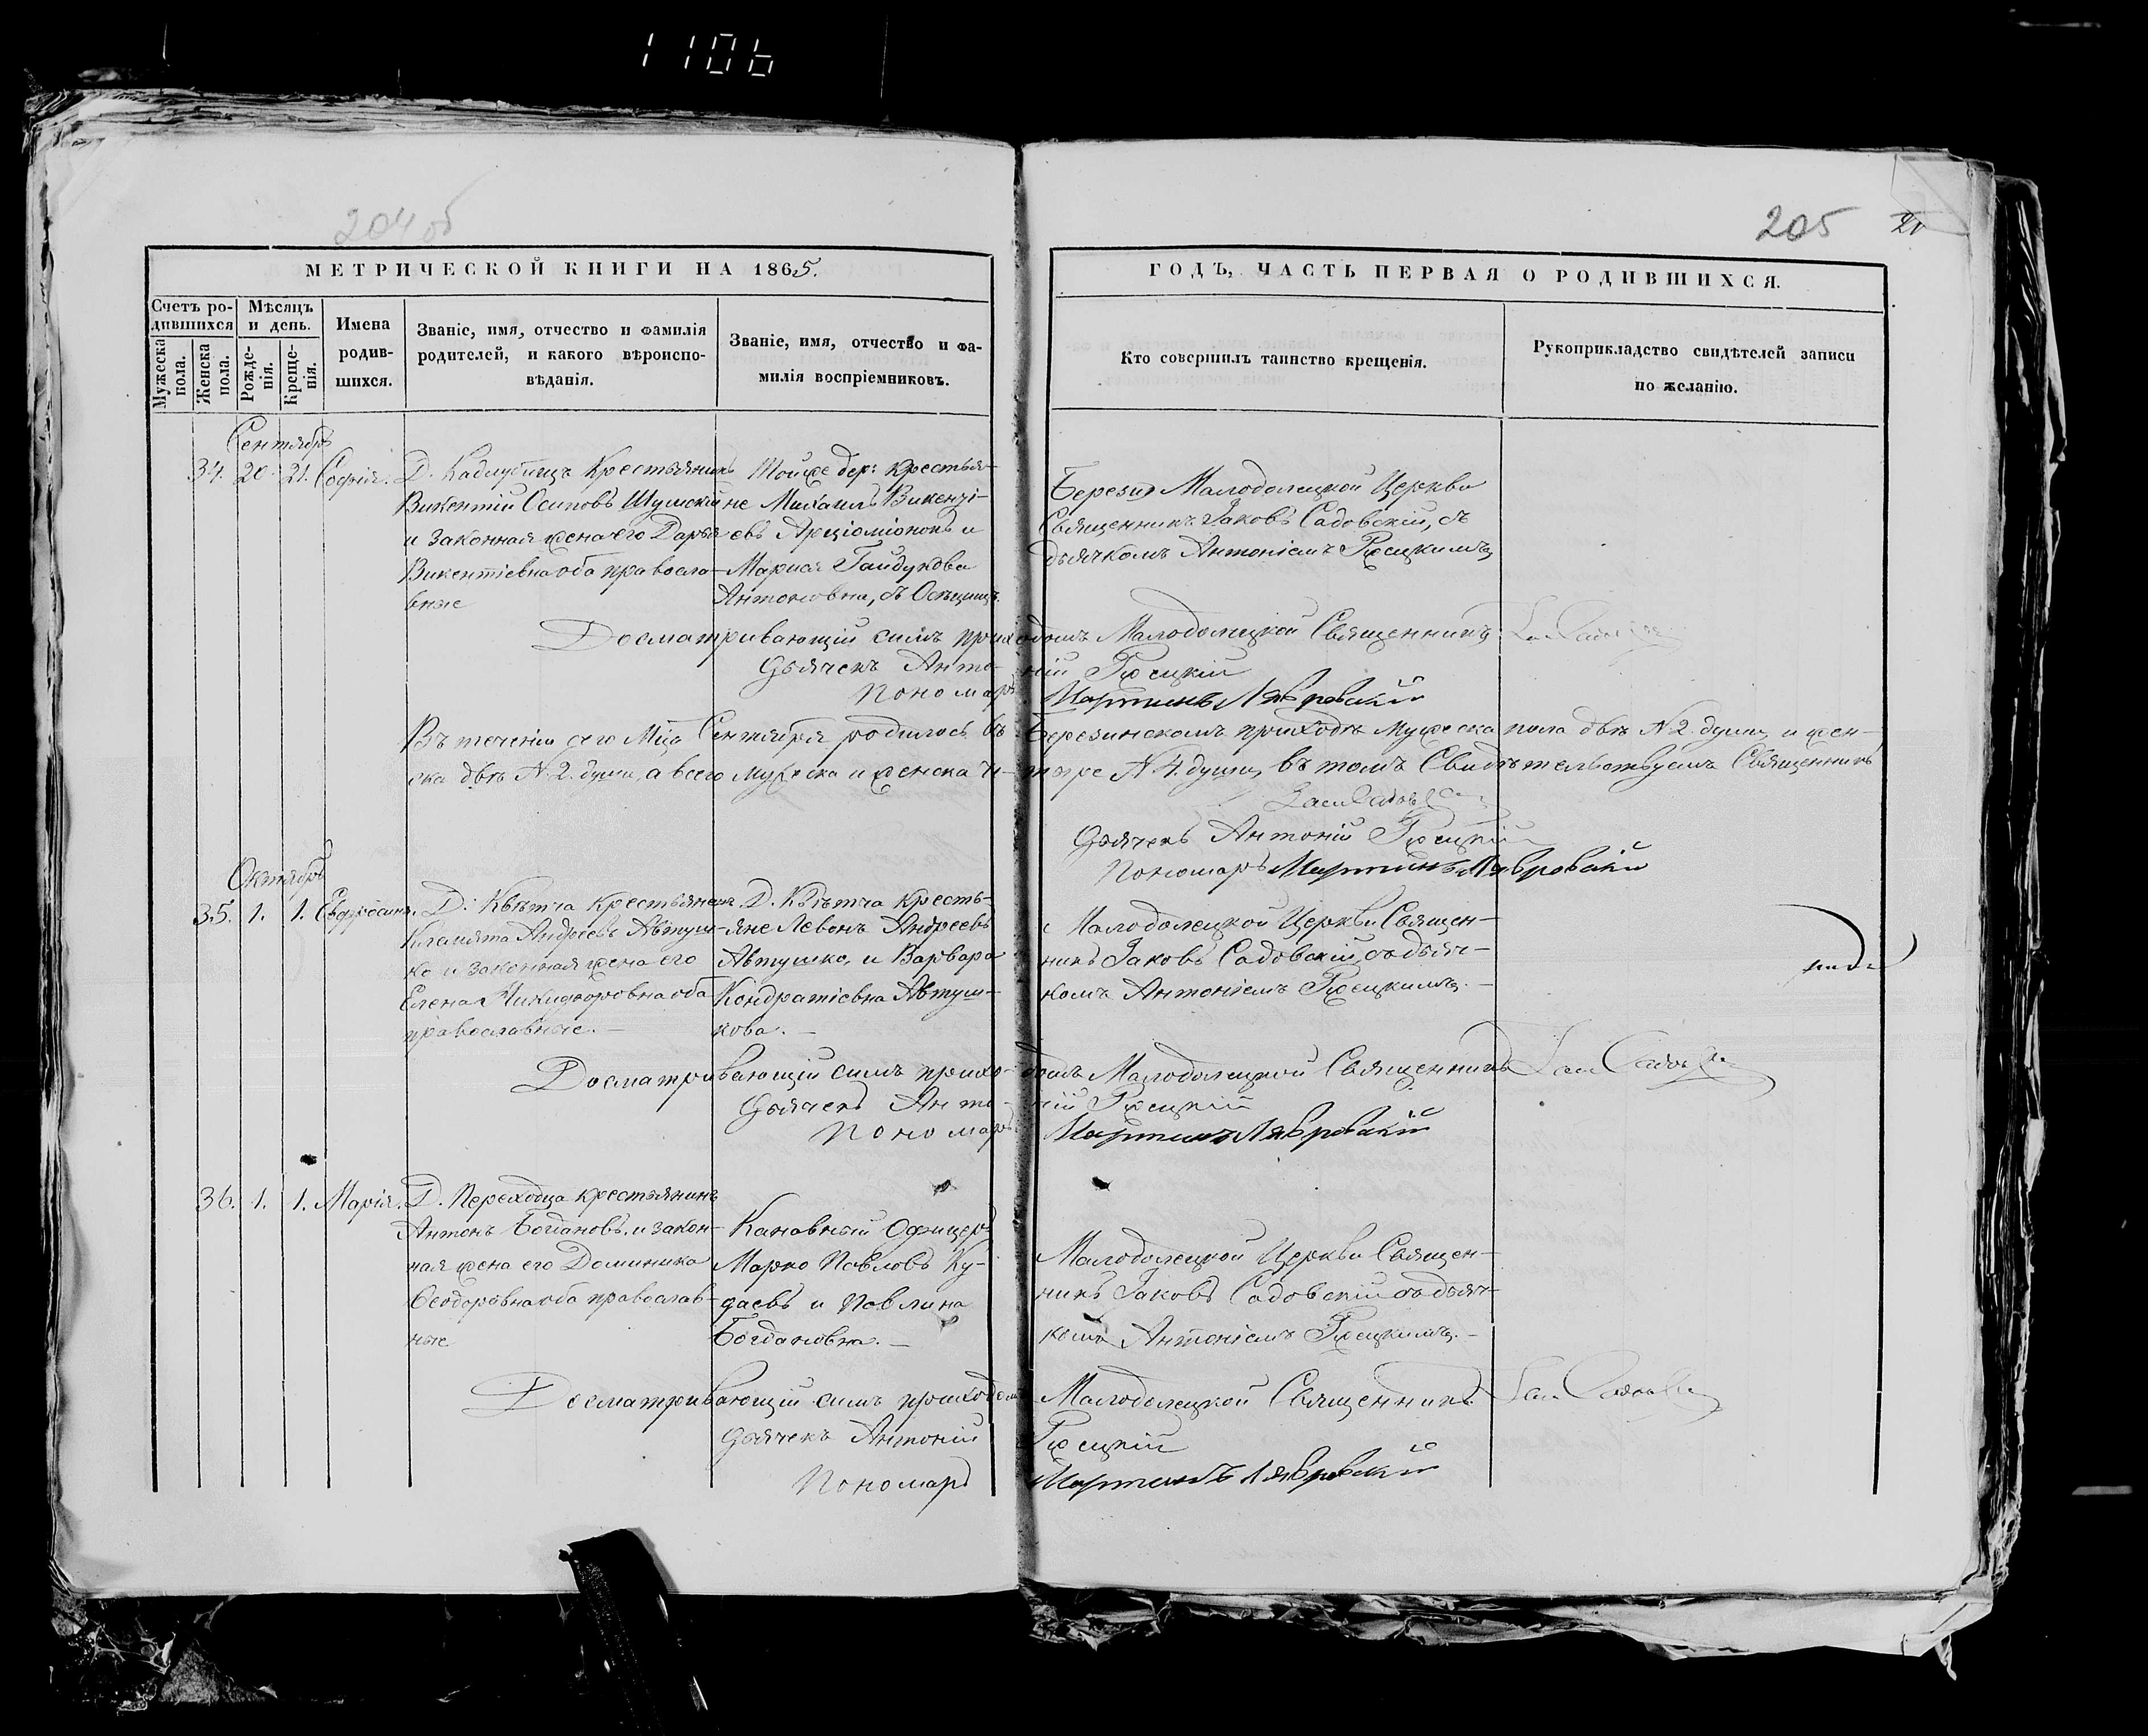 1106
204 об
205
21
МЕТРИЧЕСКОЙ КНИГИ НА 1865.
Счетъ ро-
дившихся
Мужеска пола.
Женска пола.
Мѣсяцъ
и день.
Рожде-
нія.
Креще-
нія.
Имена
родив-
шихся.
Званіе, имя, отчество и фамилія
родителей, и какого вѣроиспо-
вѣданія.
Званіе, имя, отчество и фа-
милія воспріемниковъ.
ГОДЪ, ЧАСТЬ ПЕРВАЯ О РОДИВШИХСЯ.
Кто совершилъ таинство крещенія.
Рукоприкладство свидѣтелей записи
по желанію.
Сентябрь
34. 20. 21. Софія.
Д. Кадлубищъ Крестьянинъ
Викентій Осиповъ Шушскій
и законная жена его Дарья
Викентіевна оба правосла-
вные
Тойже дер: крестья-
не Михаилъ Викенті-
евъ и
Мария Гайдукова
Антоновна, съ
Малодолецкой Церкви
Священникъ Іаковъ Садовскій, съ
дьячкомъ Антоніемъ Ржецкимъ
Досматривающій симъ приходомъ Малодолецкой Священникъ
Дьячекъ Антоній Ржецкій
Пономарь Мартинъ Лавровскій
Въ теченіи сего Мца Сентября родилось въ Березинскомъ приходѣ мужеска пола двѣ N 2. души и жен-
ска двѣ N. 2. души, а всего мужеска и женска че-тыре N 4. души, въ томъ Свидѣтельствуемъ Священникъ
Дьячекъ Антоній Ржецкій
Пономарь Мартинъ Лавровскій
Октябрь
35. 1. 1. Евфросинія.
Д. Квѣтча Крестьянинъ
Андреевъ Автуш-
ко и законная жена его
Елена Никифоровна оба
православные. —
Д. Квѣтча кресть-
яне Левонъ Андреевъ
Автушко, и Варвара
Кондратіевна Автуш-
кова. —
Малодолецкой Церкви Священ-
никъ Іаковъ Садовскій, съ дьяч-
комъ Антоніемъ Ржецкимъ. —
Досматривающій симъ прихо-домъ Малодолецкой Священникъ
Дьячекъ Анто-ній Ржецкій
Пономарь Мартинъ Лавровскій
36. 1. 1. Марія.
Д. Переходца крестьянинъ
Антонъ Богдановъ, и закон-
ная жена его Доминика
Ѳеодоровна оба православ-
ные
Канавный Офицеръ
Марко Павловъ Ку-
даевъ и Павлина
Богдановна. —
Малодолецкой Церкви Священ-
никъ Іаковъ Садовскій съ дьяч-
комъ Антоніемъ Ржецкимъ. —
Досматривающій симъ приходомъ Малодолецкой Священникъ
Дьячекъ Антоній Ржецкій
Пономарь Мартинъ Лавровскій